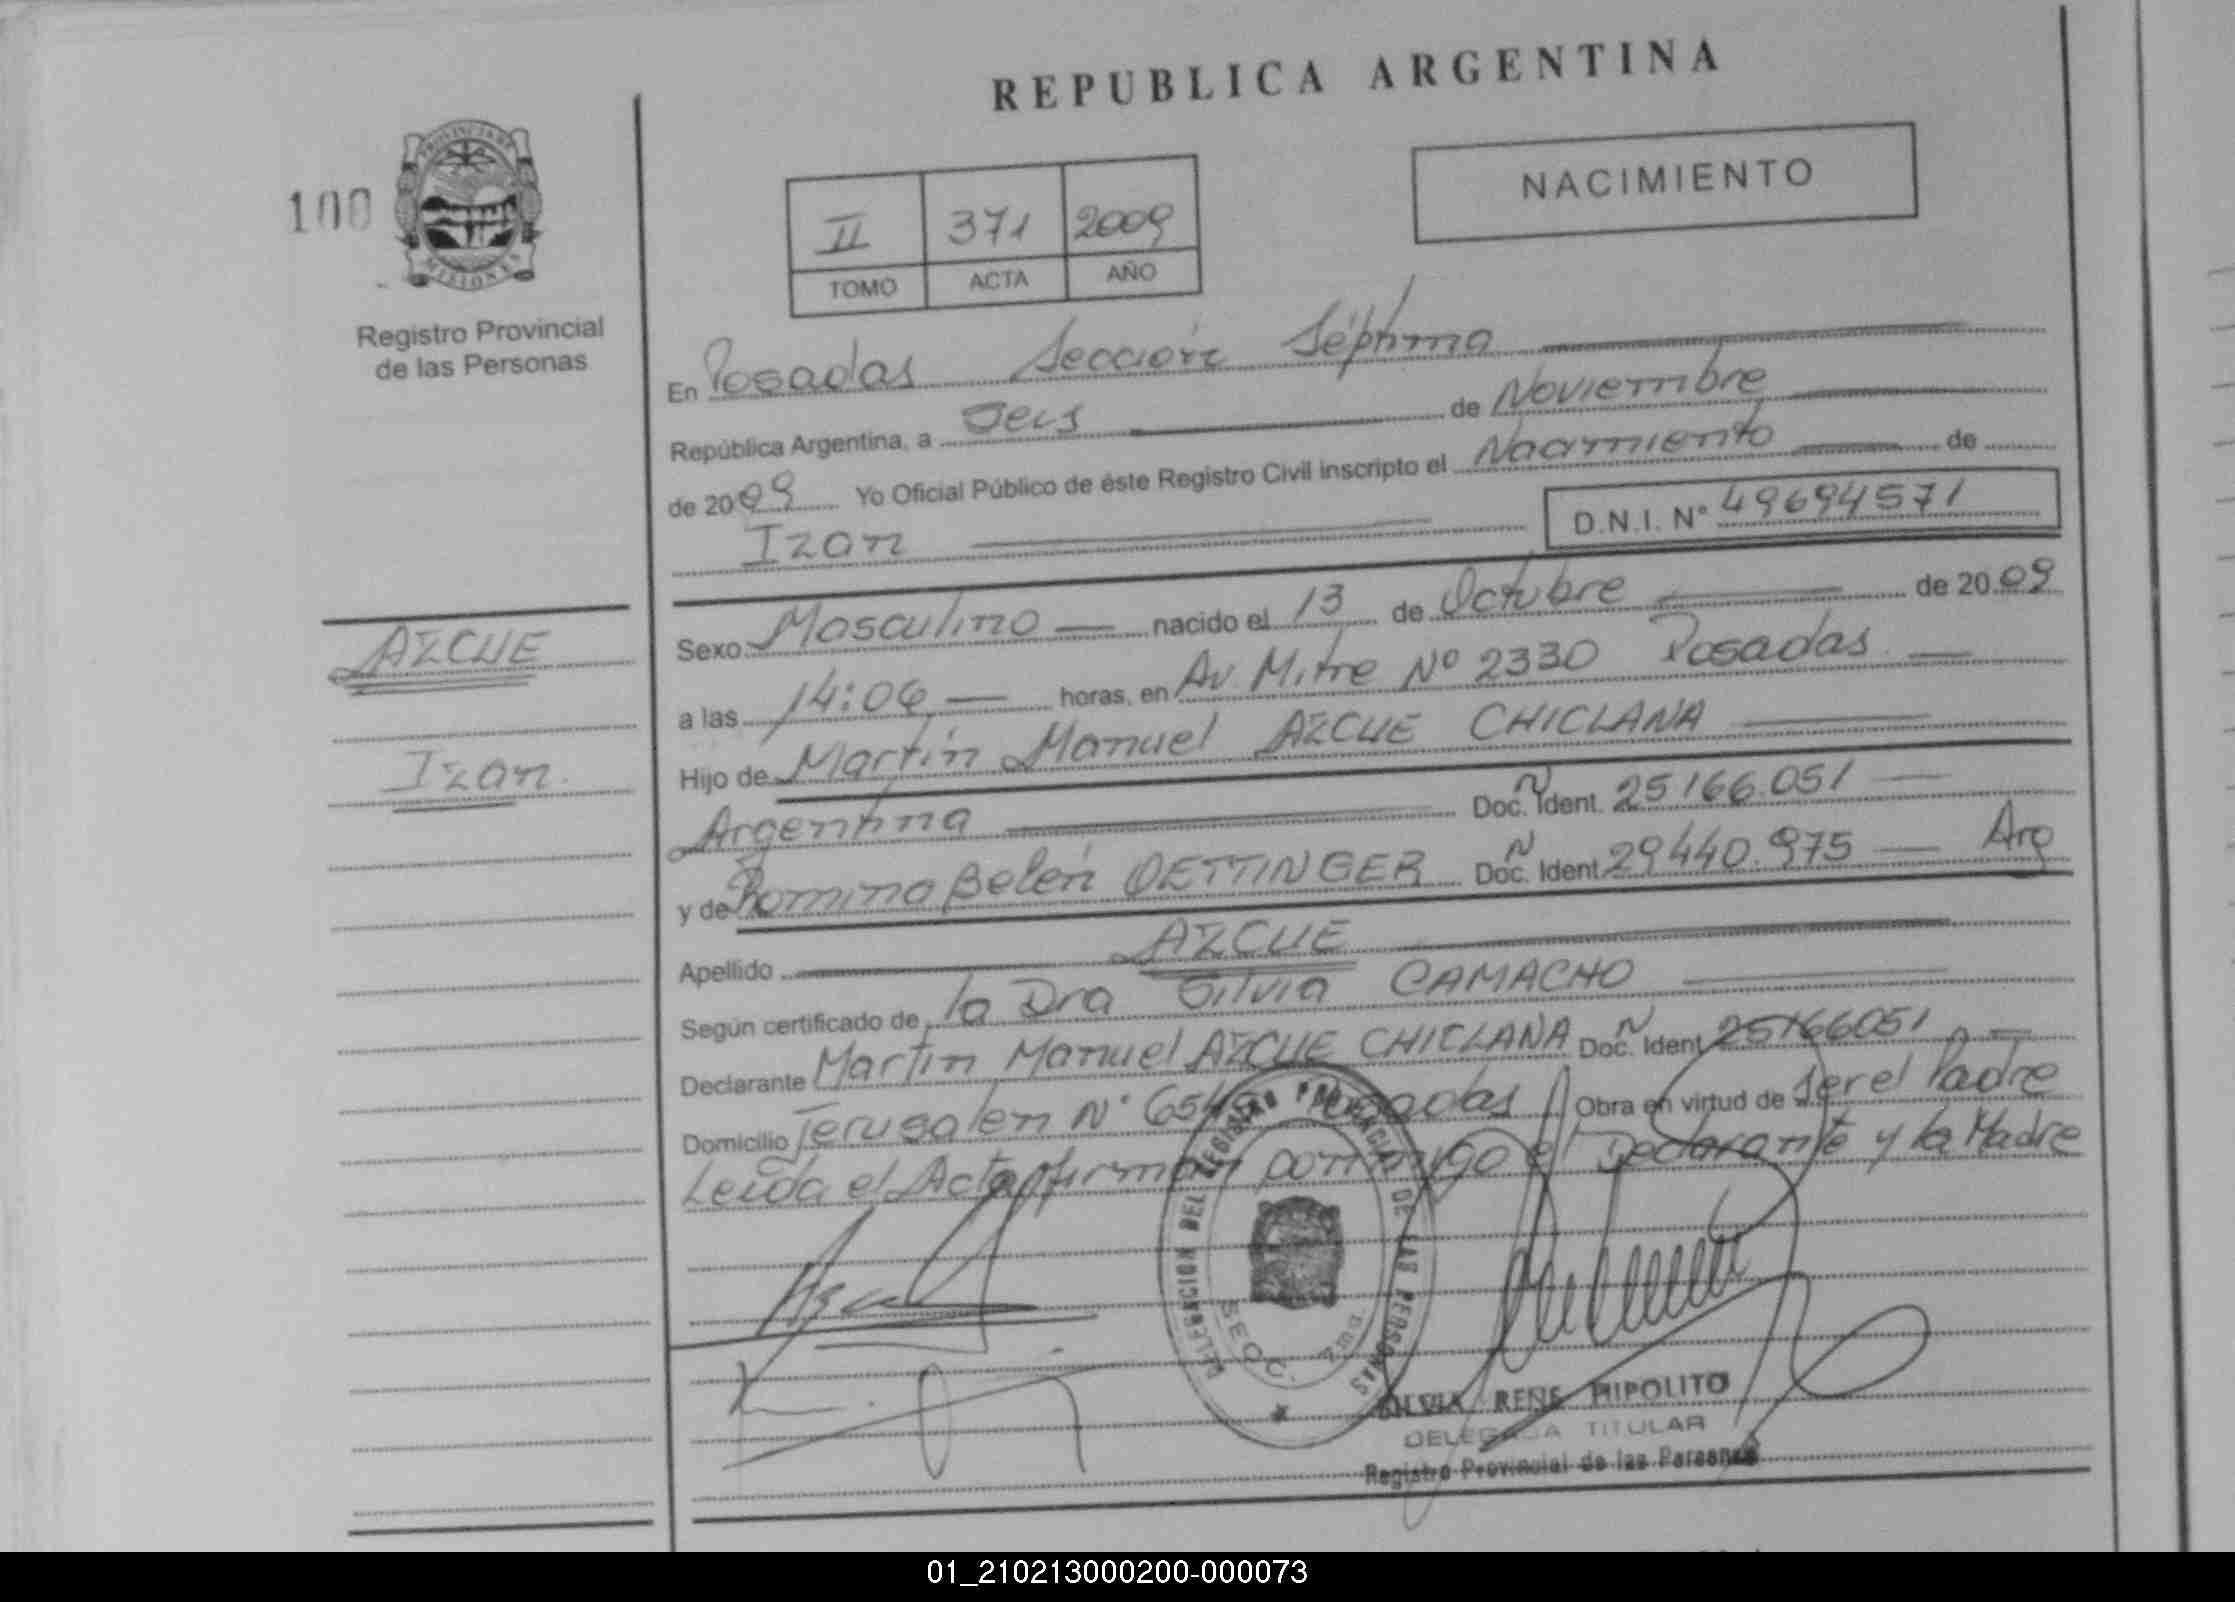 REPUBLICA ARGENTINA
100
PROVINCIA DE
MISIONES
Registro Provincial
de las Personas
NACIMIENTO
II 371 2009
TOMO ACTA AÑO
En Posadas Sección Séptima
República Argentina, a Seis de Noviembre
de 2009 Yo Oficial Público de éste Registro Civil inscripto el Nacimiento de
Izan D.N.I. N° 49694571
AZCUE
Izan
Sexo Masculino nacido el 13 de Octubre de 2009
a las 14:06 horas, en Av. Mitre Nº 2330 Posadas
Hijo de Martín Manuel AZCUE CHICLANA
Argentina Doc. N Ident. 25166.051
y de Romina Belén OETTINGER Doc. N Ident 29440.975 Arg
Apellido AZCUE
Según certificado de la Dra Silvia CAMACHO
Declarante Martín Manuel AZCUE CHICLANA Doc. N Ident 25166051
Domicilio Jerusalén N° Posadas Obra en virtud de Ser el Padre
Leida el Acta firman conmigo el Declarante y la Madre
DELEGACION DEL REGISTRO PROVINCIAL DE LAS PERSONAS
SECC.
SILVIA RENE HIPOLITO
DELEGADA TITULAR
Registro Provincial de las Personas
01_210213000200-000073